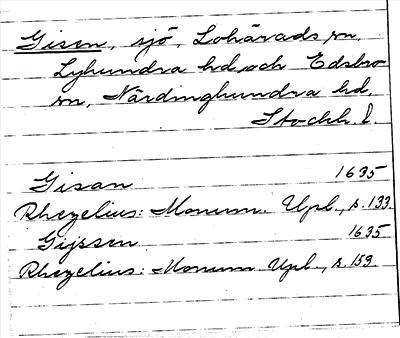 Gisen, sjö, Lohärads sn,
Lyhundra hd och Edsbro
sn, Närdinghundra hd.
Stockh. l.
Gisan 1635
Rhezelius: Monum. Upl., s. 133
Gijssen 1635
Rhezelius: Monum Upl., s. 159